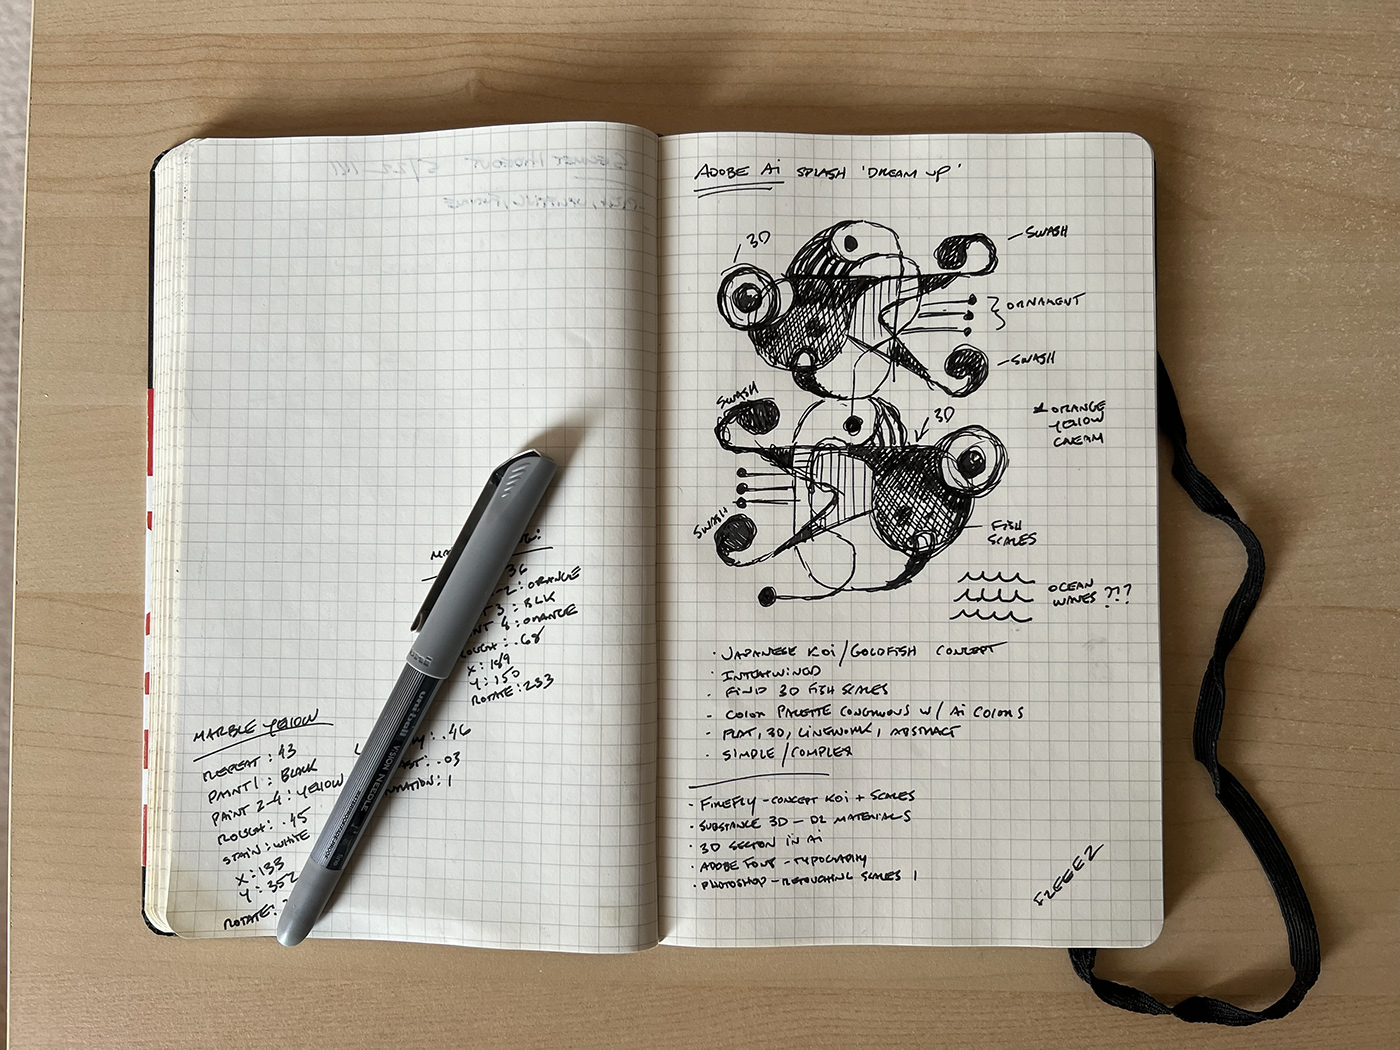 MARBLE YELLOW
REPEAT : 43
PAINT 1 : BLACK
PAINT 2-4 : YELLOW
ROUGH : .45
STAIN : WHITE
X : 133
Y : 352
ROTATE :
36
-2 : ORANGE
3 : BLK
NT 4 : ORANGE
ROUGH : .68
X : 169
Y : 150
ROTATE : 233
: .46
AST : .03
: 1
uni-ball VISION NEEDLE
ADOBE Ai SPLASH 'DREAM UP'
3D
SWASH
ORNAMENT
SWASH
SWASH
3D
ORANGE
YELLOW
CREAM
SWASH
FISH
SCALES
OCEAN
WAVES ???
· JAPANESE KOI / GOLDFISH CONCEPT
· INTERTWINED
- FIND 3D FISH SCALES
- COLOR PALETTE CONGRUOUS W/ Ai COLORS
- FLAT, 3D, LINEWORK, ABSTRACT
· SIMPLE / COMPLEX
· FIREFLY - CONCEPT KOI + SCALES
· SUBSTANCE 3D - MATERIALS
· 3D SECTION IN Ai
· ADOBE FONT - TYPOGRAPHY
· PHOTOSHOP - RETOUCHING SCALES